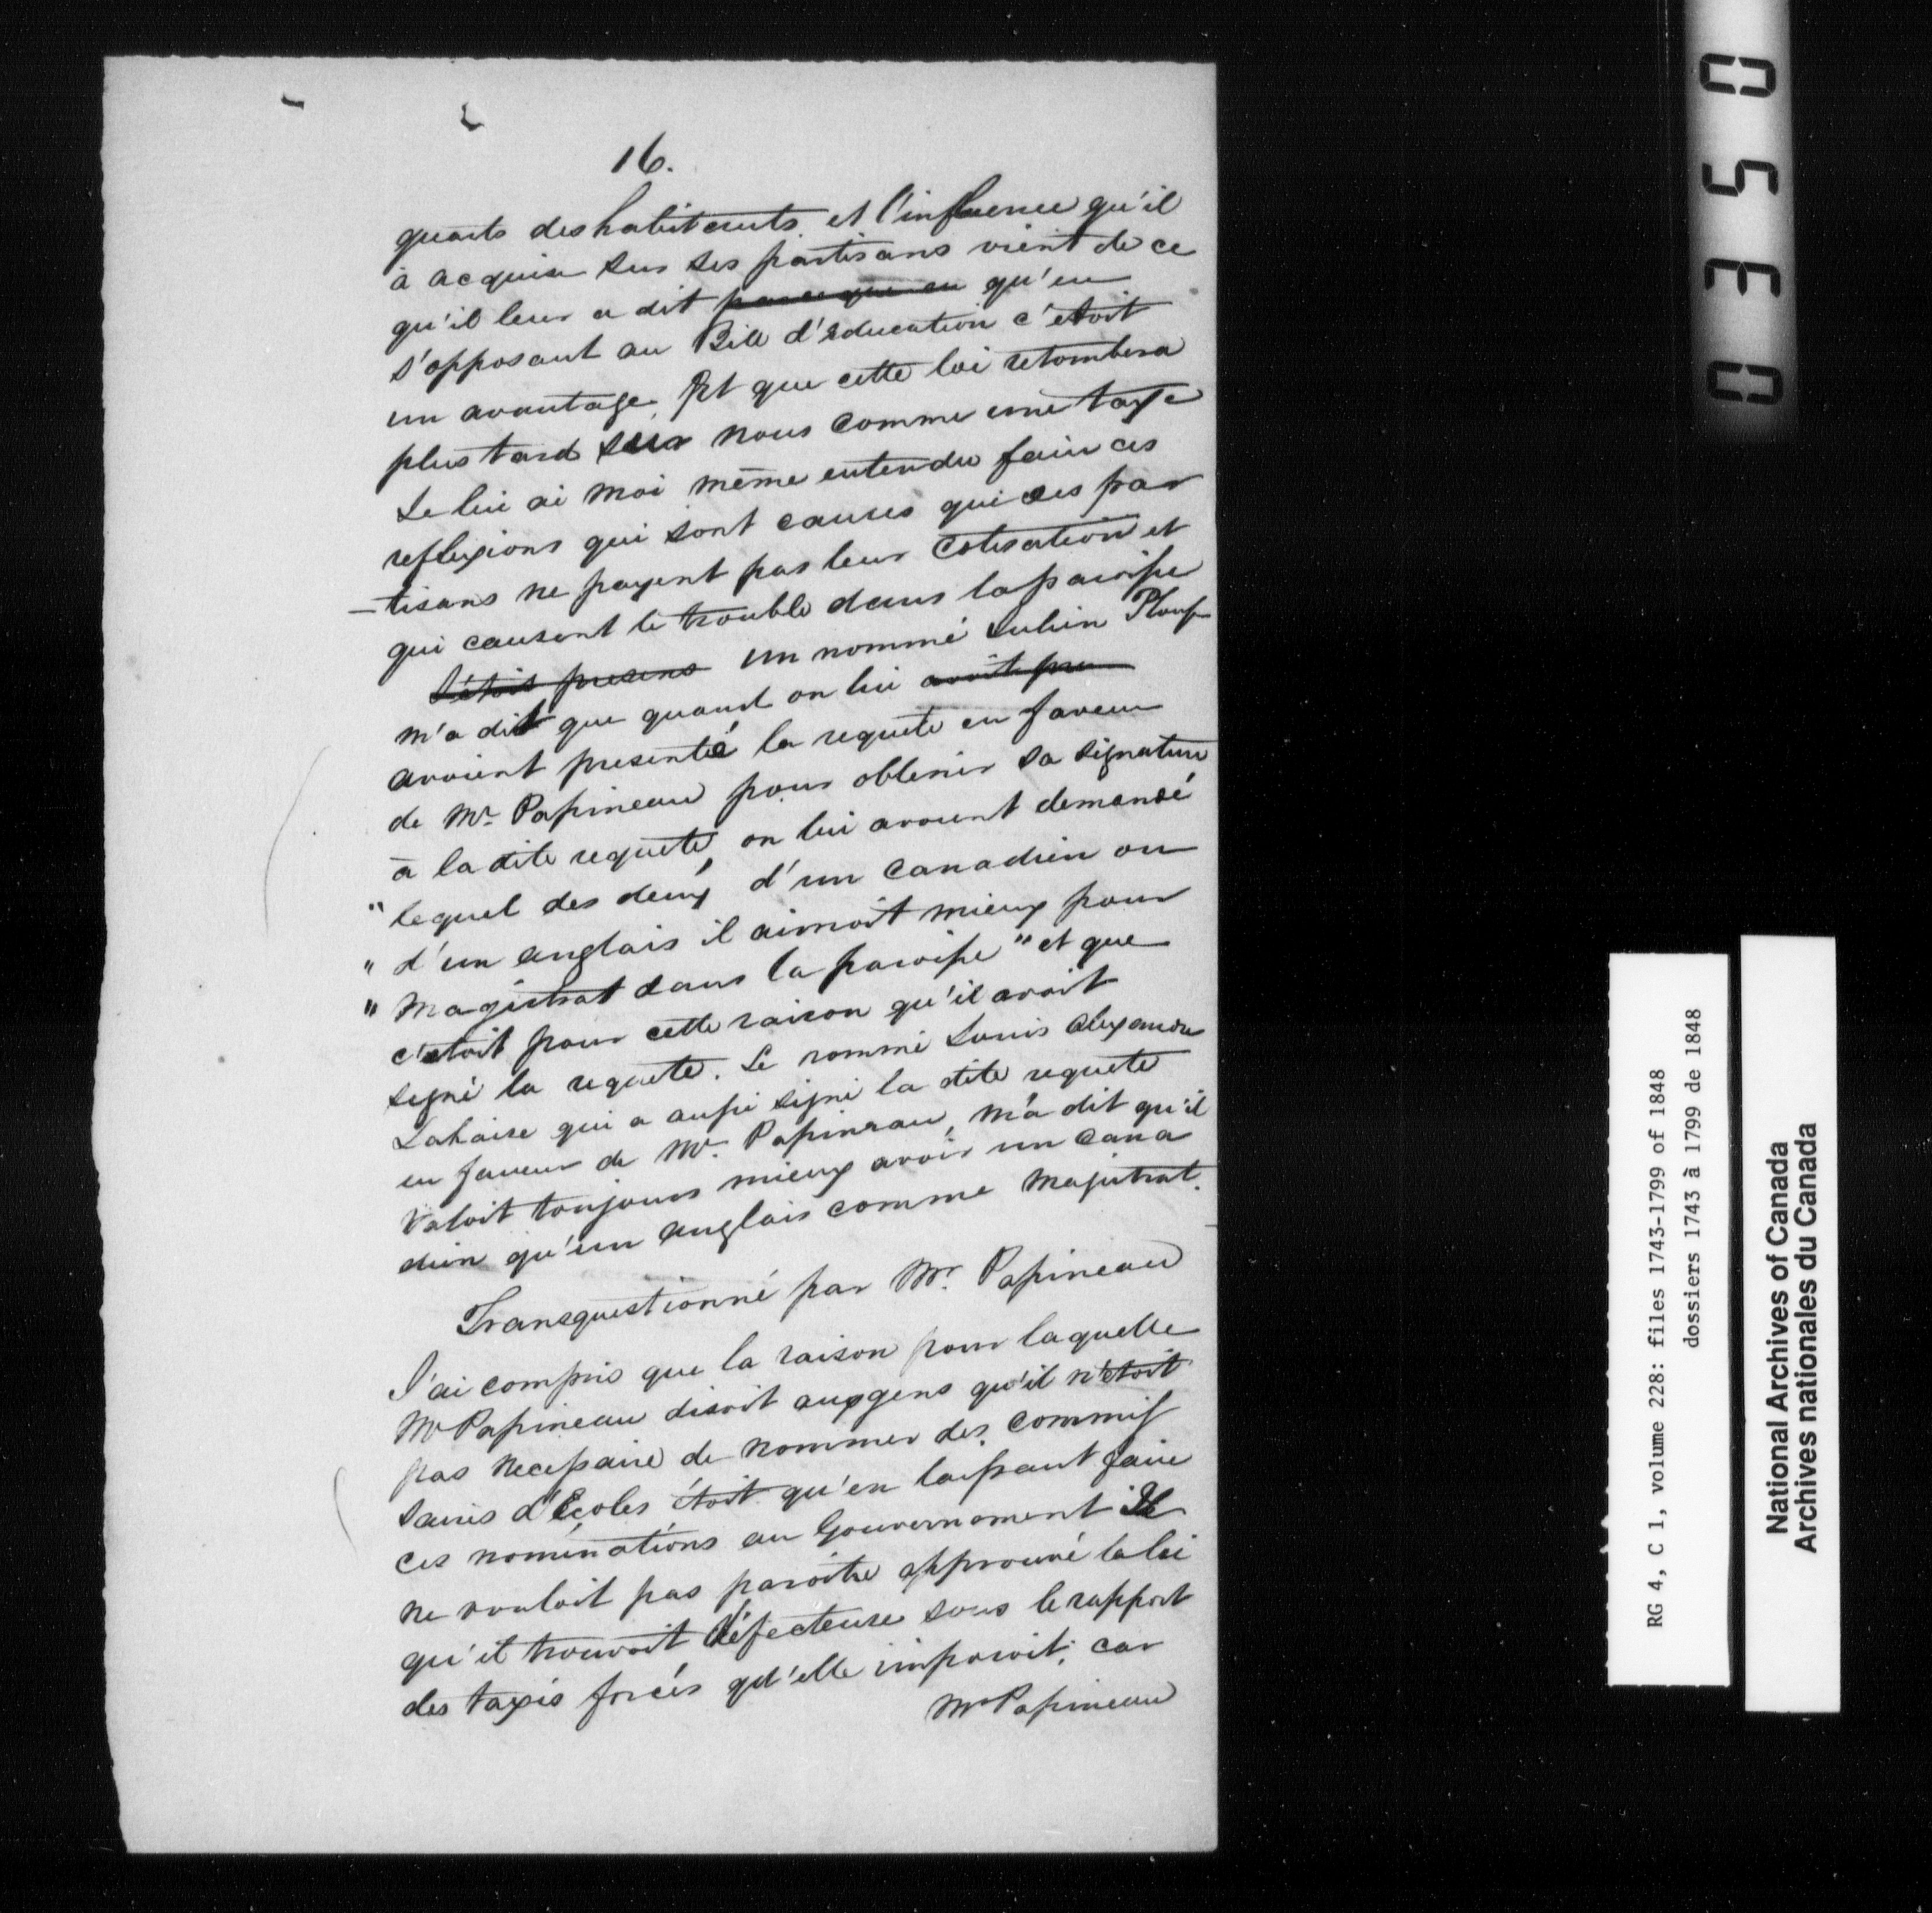 16.
quarts des habitants. et l'influence qu'il
à acquise sur ses partisans vient de ce
qu'il leur a dit parceque en qu'en
s'opposant au Bill d'éducation c'etoit
un avantage, Et que cette loi retombera
plus tard sur nous comme une taxe
Je lui ai moi même entendu faire ces
reflexions qui sont causes qui ses par
-tisans ne payent pas leur Cotisation et
qui causent le trouble dans la paroisse
J'étois presens un nommé Julien Plouf
m'a dit que quand on lui avoit pre
avoient presenté la requete en faveur
de Mr. Papineau pour obtenir sa signature
à la dite requete, on lui avoient demandé
" lequel des deux d'un Canadien ou
" d'un anglais il aimoit mieux pour
" Magistrat dans la paroisse" et que
c'etoit pour cette raison qu'il avoit
signé la requete. Le nommé Louis Alexandre
Lahaise qui a aussi signé la dite requete
en faveur de Mr. Papineau, m'a dit qu'il
Valoit toujours mieux avoir un Cana
dien qu'un anglais comme Magistrat.
Transquestionné par Mr. Papineau
J'ai compris que la raison pour laquelle
Mr Papineau disoit aux gens qu'il n'etoit
pas necessaire de nommer des Commis
saires d'Ecoles étoit qu'en laissant faire
ces nominations au Gouvernement Il
ne vouloit pas paroitre approuvé la loi
qu'il trouvoit défecteuse sous le rapport
des taxes forcés qu'elle imposoit; car
Mr Papineau
0350
RG 4, C 1, volume 228: files 1743-1799 of 1848
dossiers 1743 à 1799 de 1848
National Archives of Canada
Archives nationales du Canada